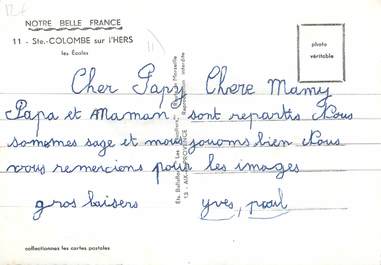 12F
NOTRE BELLE FRANCE
11 - Ste-COLOMBE sur l'HERS
les Écoles
photo
véritable
Cher Papy Chere Mamy
Papa et Maman sont repartis Nous
sommes sage et nous jouons bien Nous
vous remercions pour les images
gros baisers yves, paul
Reproduction interdite
13 - AIX-en-PROVENCE
collectionnez les cartes postales